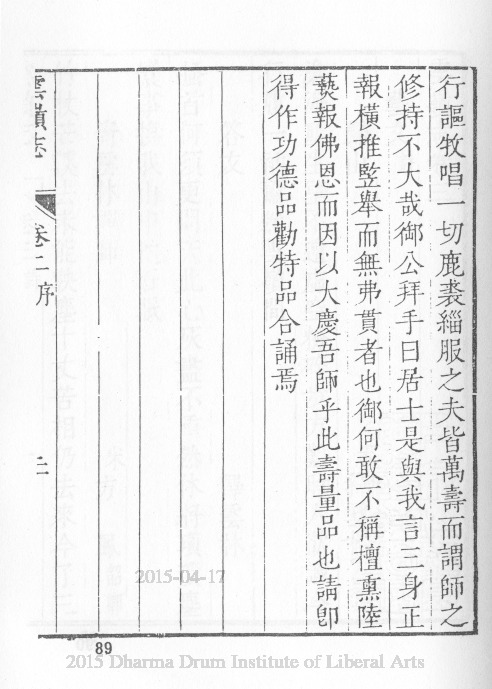 行謳牧唱一切鹿裘緇服之夫皆萬壽而謂師之
修持不大哉御公拜手曰居士是與我言三身正
報橫推竪舉而無弗貫者也御何敢不稱檀熏陸
爇報佛恩而因以大慶吾師乎此壽量品也請卽
得作功德品勸特品合誦焉
雲嶺志
卷二序
二
2015-04-17
89
2015 Dharma Drum Institute of Liberal Arts